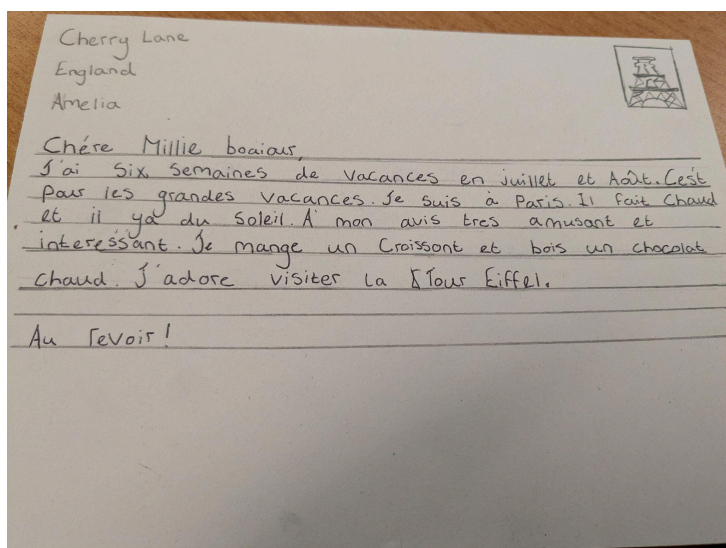 Cherry Lane
England
Amelia
Chére Millie boaiour,
J'ai six semaines de vacances en juillet et Août. C'est
pour les grandes vacances. Je suis à Paris. Il fait chaud
et il ya du soleil. A mon avis tres amusant et
interessant. Je mange un Croissont et bois un chocolat
chaud. J'adore visiter la Tour Eiffel.
Au revoir!